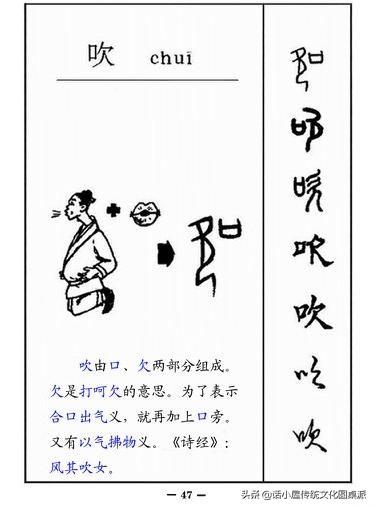 吹 chuī
吹由口、欠两部分组成。
欠是打呵欠的意思。为了表示
合口出气义，就再加上口旁。
又有以气拂物义。《诗经》：
风其吹女。
— 47 —
头条 @诺小屋传统文化圆桌派